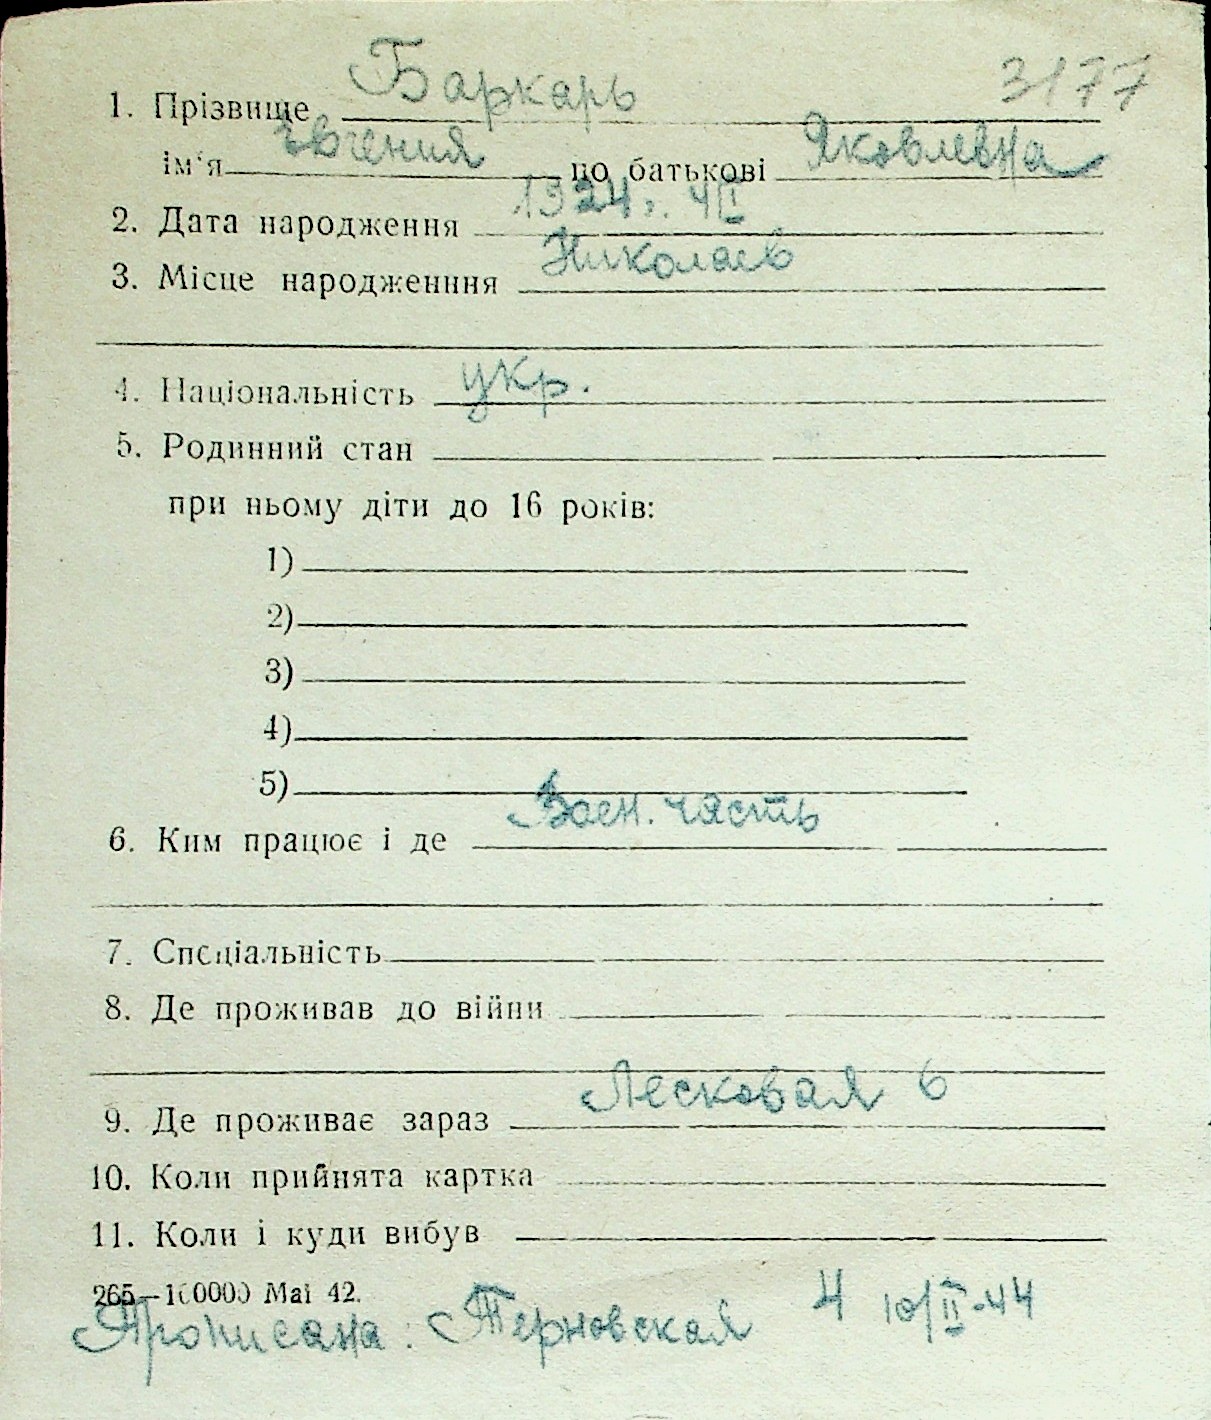 3177
1. Прізвище Баркарь
ім'я Евгения по батькові Яковлевна
2. Дата народження 1924 г. 4/II
3. Місце народженння Николаев
4. Національність укр.
5. Родинний стан
при ньому діти до 16 років:
1)
2)
3)
4)
5)
6. Ким працює і де Воен. часть
7. Спеціальність
8. Де проживав до війни
9. Де проживає зараз Лесковая 6
10. Коли прийнята картка
11. Коли і куди вибув
265—100000 Mai 42.
Прописана: Терновская 4 10/II-44